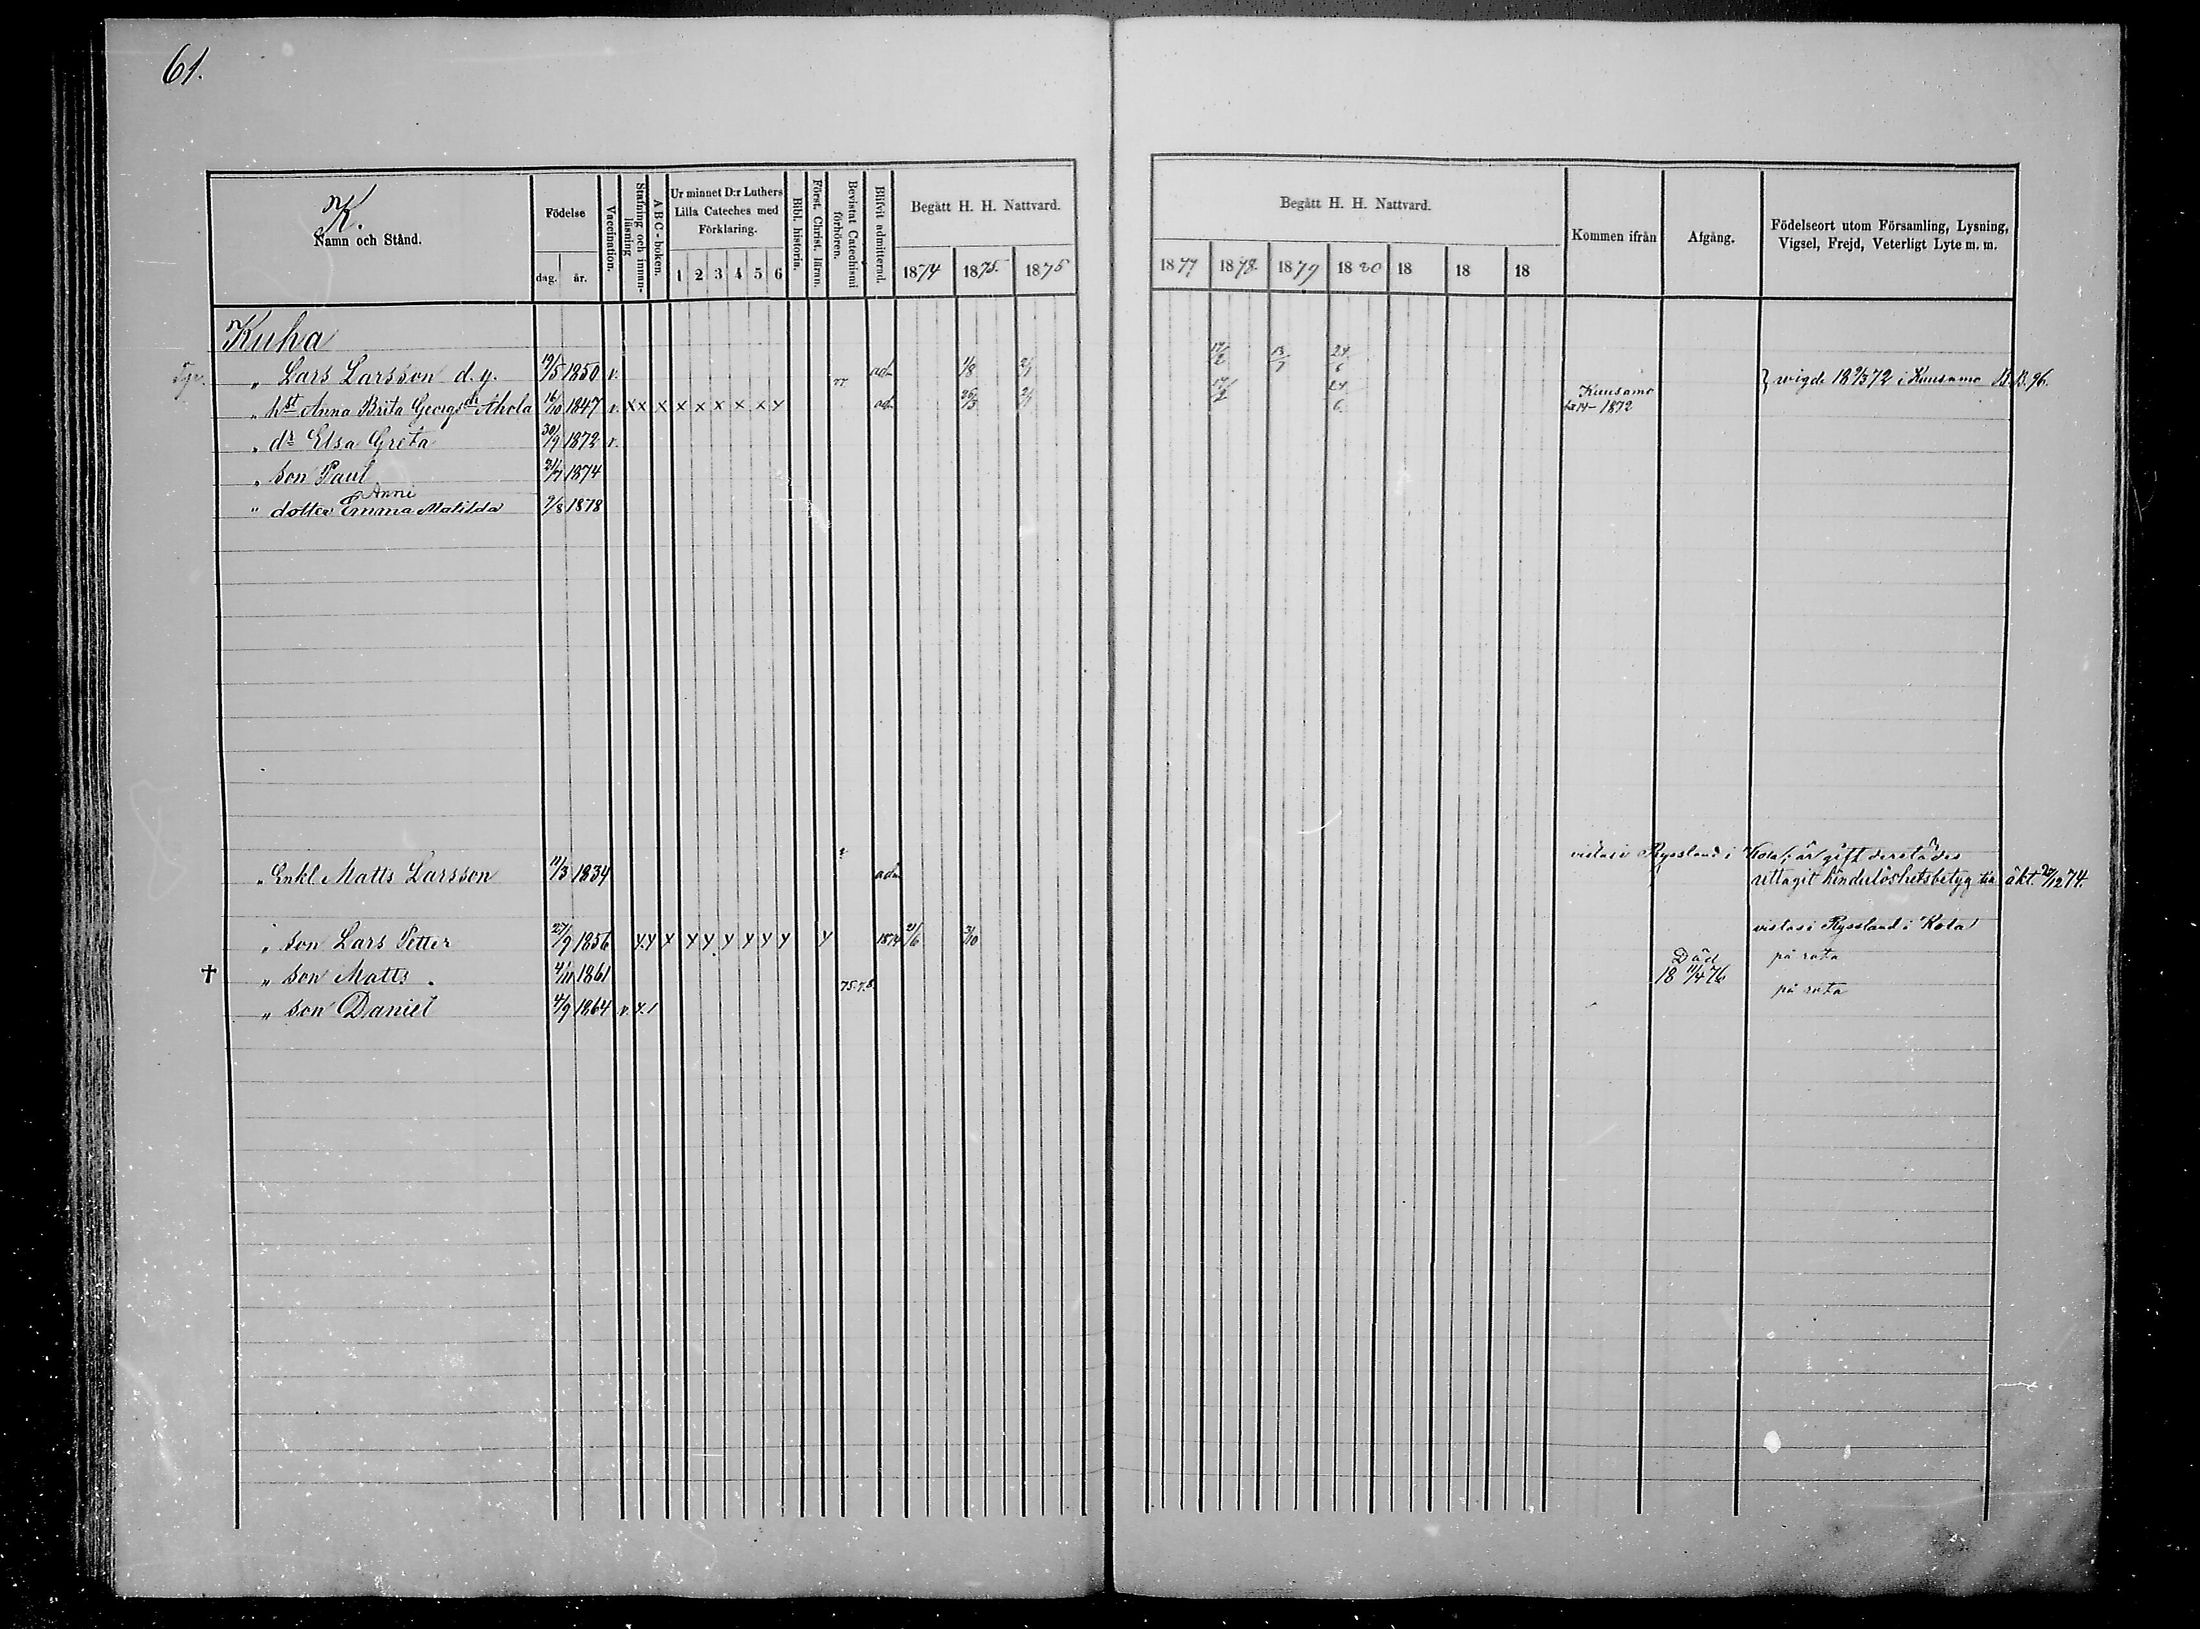 61.
K.
Namn och Stånd.
Födelse
dag. år.
Vaccination.
Stafning och innan-läsning
A B C-boken.
Ur minnet D:r Luthers
Lilla Cateches med
Förklaring.
1 2 3 4 5 6
Bibl. historia.
Först. Christ. läran.
Bevistat Catechismi förhören.
Blifvit admitterad.
Begått H. H. Nattvard.
1874 1875. 1875
Begått H. H. Nattvard.
1877 1878. 1879 1880 18 18 18
Kommen ifrån
Afgång.
Födelseort utom Församling, Lysning,
Vigsel, Frejd, Veterligt Lyte m. m.
Kuha
" Lars Larsson d. y. 19/5 1850 v. adm 1/8 2/1 17/2 13/7 24/6 } wigde 18 9/3 72 i Kuusamo B.B. 96.
" hst Anna Brita Georgsdr Ahola 16/10 1847 v. x x x x x x x x y adm 26/3 2/1 17/2 24/6 Kuusamo
14 - 1872
" dr Elsa Greta 30/9 1872 v.
" son Paul 21/7 1874
Anni
" dotter Emma Matilda 9/8 1878
vistas i Ryssland i Kola; är gift derstädes
" Enkl Matts Larsson 11/3 1834 adm uttagit hinderlöshetsbetyg till äkt. 29/12 74.
vistas i Ryssland i Kola
" son Lars Petter 27/9 1856 y.y x y y y y y y y 1874 21/6 3/10
på rota
† " son Matts. 4/11 1861 Död
18 11/4 76
75.7.8.
på rota
" son Daniel 4/9 1864 v. y. 1